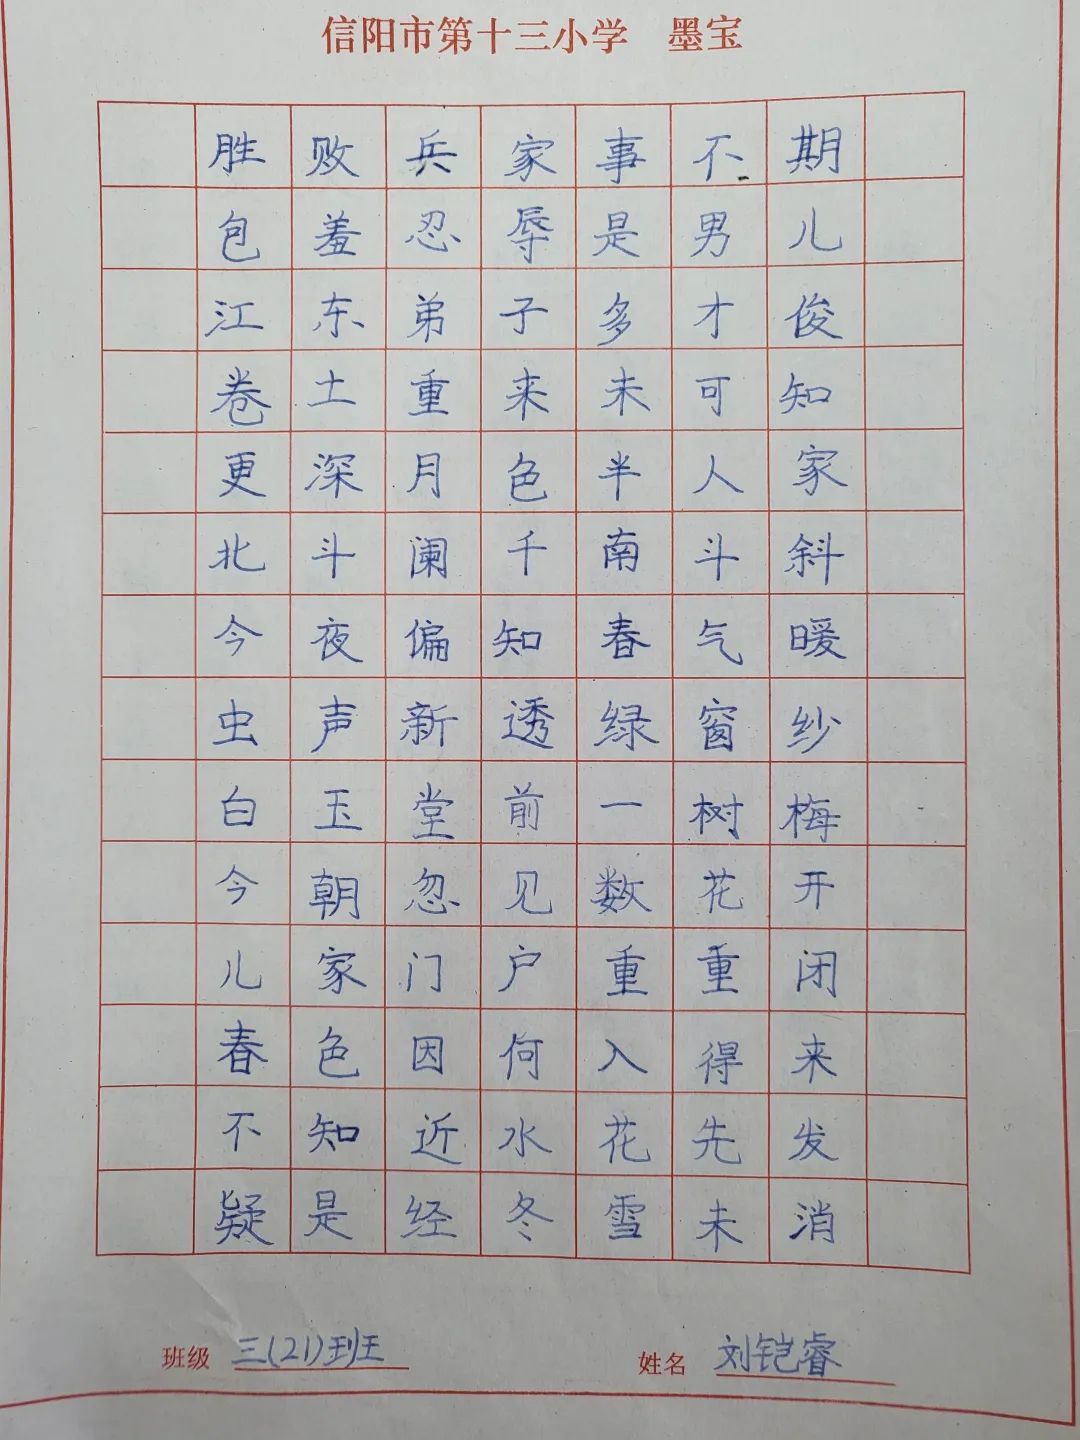 信阳市第十三小学 墨宝
胜败兵家事不期
包羞忍辱是男儿
江东弟子多才俊
卷土重来未可知
更深月色半人家
北斗阑干南斗斜
今夜偏知春气暖
虫声新透绿窗纱
白玉堂前一树梅
今朝忽见数花开
儿家门户重重闭
春色因何入得来
不知近水花先发
疑是经冬雪未消
班级 三(21)班 姓名 刘铠睿